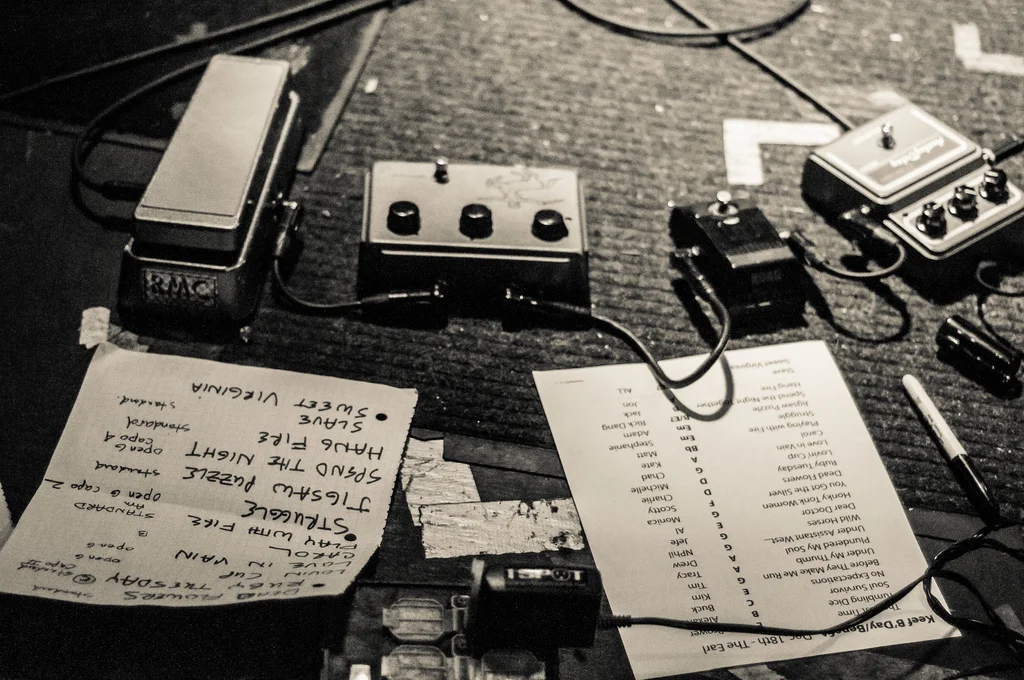 RMC
KORG
1SPOT
DEAD FLOWERS standard
• RUBY TUESDAY
LOVIN CUP open G
LOVE IN VAIN open G
CAROL B
• PLAY WITH FIRE STANDARD
STRUGGLE open G capo 2
JIGSAW PUZZLE standard
SPEND THE NIGHT open G capo 4
HANG FIRE standard
SLAVE
• SWEET VIRGINIA standard
Keef B'Day/Benefit Dec 18th - The Earl
Time
Tumbling Dice
Soul Survivor
No Expectations
Before They Make Me Run
Under My Thumb
Plundered My Soul
Under Assistant West...
Wild Horses
Dear Doctor
Honky Tonk Women
You Got the Silver
Dead Flowers
Ruby Tuesday
Lovin' Cup
Love in Vain
Carol
Playing with Fire
Struggle
Jigsaw Puzzle
Spend the Night Together
Hang Fire
Slave
Sweet Virginia
Buck
Kim
Tim
Tracy
Drew
NPhil
Jefe
Al
Monica
Scotty
Charlie
Michelle
Chad
Kate
Matt
Stephanie
Adam
Rick Dang
Jack
Jon
ALL